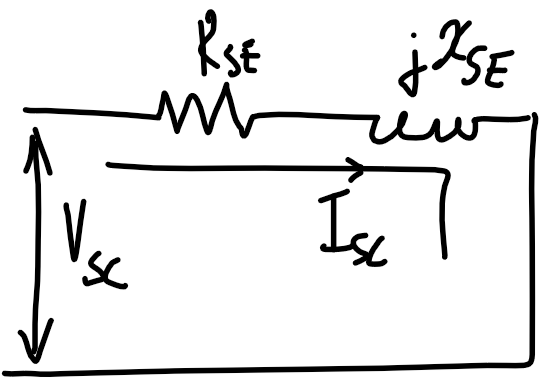 R_SE
jX_SE
V_SC
I_SC